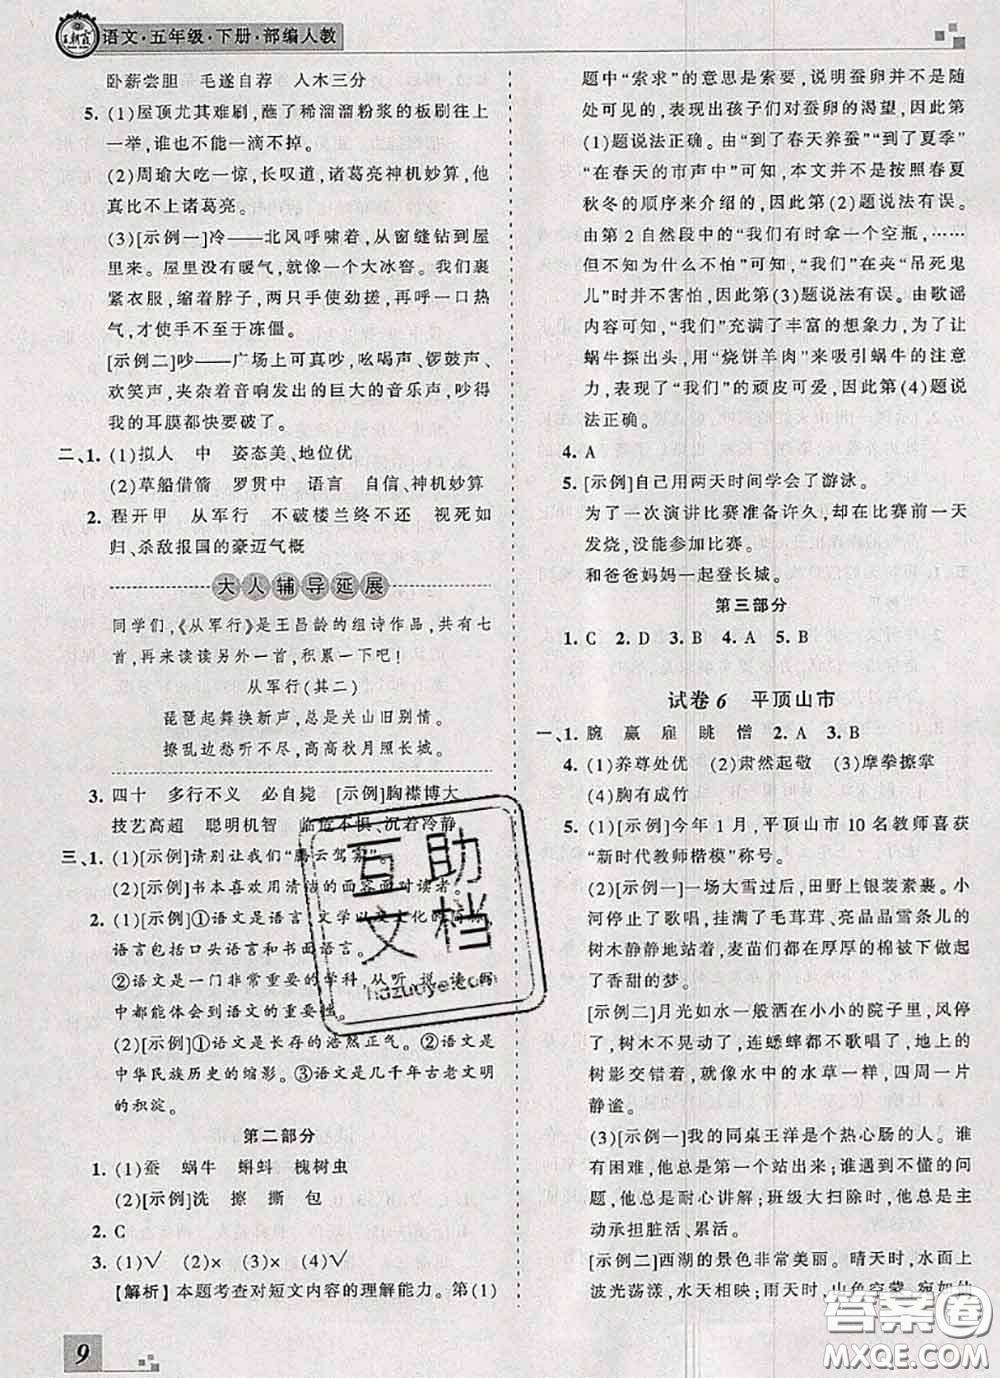 王朝霞
语文·五年级·下册·部编人教
卧薪尝胆　毛遂自荐　入木三分
5. (1)屋顶尤其难刷,蘸了稀溜溜粉浆的板刷往上
一举,谁也不能一滴不掉。
(2)周瑜大吃一惊,长叹道,诸葛亮神机妙算,他
真比不上诸葛亮。
(3)[示例一]冷——北风呼啸着,从窗缝钻到屋
里来。屋里没有暖气,就像一个大冰窖。我们裹
紧衣服,缩着脖子,两只手劲搓,再呼一口热
气,才使手不至于冻僵。
[示例二]吵——广场上可真吵,吆喝声、锣鼓声、
欢笑声,夹杂着音响发出的巨大的音乐声,吵得
我的耳膜都快要破了。
二、1. (1)拟人　中　姿态美、地位优
(2)草船借箭　罗贯中　语言　自信、神机妙算
2. 程开甲　从军行　不破楼兰终不还　视死如
归、杀敌报国的豪迈气概
大人辅导延展
同学们,《从军行》是王昌龄的组诗作品,共有七
首,再来读读另外一首,积累一下吧!
从军行(其二)
琵琶起舞换新声,总是关山旧别情。
撩乱边愁听不尽,高高秋月照长城。
3. 四十　多行不义　必自毙　[示例]胸襟博大
技艺高超　聪明机智　临危不惧、沉着冷静
三、1. (1)[示例]请别让我们“腾云驾雾”。
(2)[示例]书本喜欢用清洁的面容面对读者。
2. (1)[示例]①语文是语言、文学以及文化的简称,
语言包括口头语言和书面语言。
②语文是一门非常重要的学科,从听、说、读、写
中都能体会到语文的重要性。
(2)[示例]①语文是长存的浩然正气。②语文是
中华民族历史的缩影。③语文是几千年古老文明
的积淀。
第二部分
1. (1)蚕　蜗牛　蝌蚪　槐树虫
(2)[示例]洗　擦　撕　包
2. C
3. (1)√　(2)×　(3)×　(4)√
[解析]本题考查对短文内容的理解能力。第(1)
题中“索求”的意思是索要,说明蚕卵不是随
处可见的,表现出孩子们对蚕卵的渴望,因此第
(1)题说法正确。由“到了春天养蚕”“到了夏季”
“在春天的市声中”可知,本文并不是按照春夏
秋冬的顺序来介绍的,因此第(2)题说法有误。
由第 2 自然段中的“我们有时拿一个空瓶,……
但不知为什么不怕”可知,“我们”在夹“吊死鬼
儿”时并不害怕,因此第(3)题说法有误。由歌谣
内容可知,“我们”充满了丰富的想象力,为了让
蜗牛探出头,用“烧饼羊肉”来吸引蜗牛的注意
力,表现了“我们”的顽皮可爱,因此第(4)题说
法正确。
4. A
5. [示例]自己用两天时间学会了游泳。
为了一次演讲比赛准备许久,却在比赛前一天
发烧,没能参加比赛。
和爸爸妈妈一起登长城。
第三部分
1. C　2. D　3. B　4. A　5. B
试卷 6　平顶山市
一、1. 腕　赢　雇　眺　憎　2. A　3. B
4. (1)养尊处优　(2)肃然起敬　(3)摩拳擦掌
(4)胸有成竹
5. (1)[示例]今年 1 月,平顶山市 10 名教师喜获
“新时代教师楷模”称号。
(2)[示例一]一场大雪过后,田野上银装素裹。小
河停止了歌唱,挂满了毛茸茸、亮晶晶雪条儿的
树木静静地站着,麦苗们都在厚厚的棉被下做起
了香甜的梦。
[示例二]月光如水一般洒在小小的院子里,风停
了,树木不晃动了,连蟋蟀都不歌唱了,地上的
树影交错着,就像水中的水草一样,四周一片
静谧。
(3)[示例一]我的同桌王洋是个热心肠的人。谁
有困难,他总是第一个站出来。谁遇到不懂的问
题,他总是耐心讲解;班级大扫除时,他总是主
动承担脏活、累活。
[示例二]西湖的景色非常美丽。晴天时,水面上
波光荡漾,多姿多彩。雨天时,山色空蒙,宛如仙
互助
文档
hazuoye.com
答案圈
MXQE.COM
9